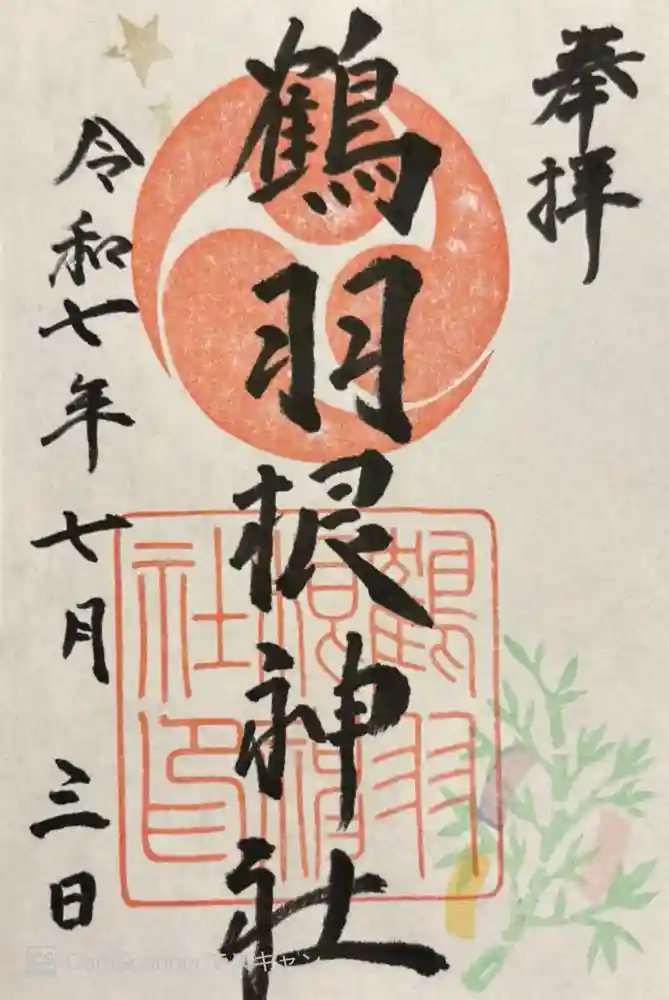 奉拝
鶴羽根神社
令和七年七月三日
鶴羽根神社印
CS CamScanner でスキャン